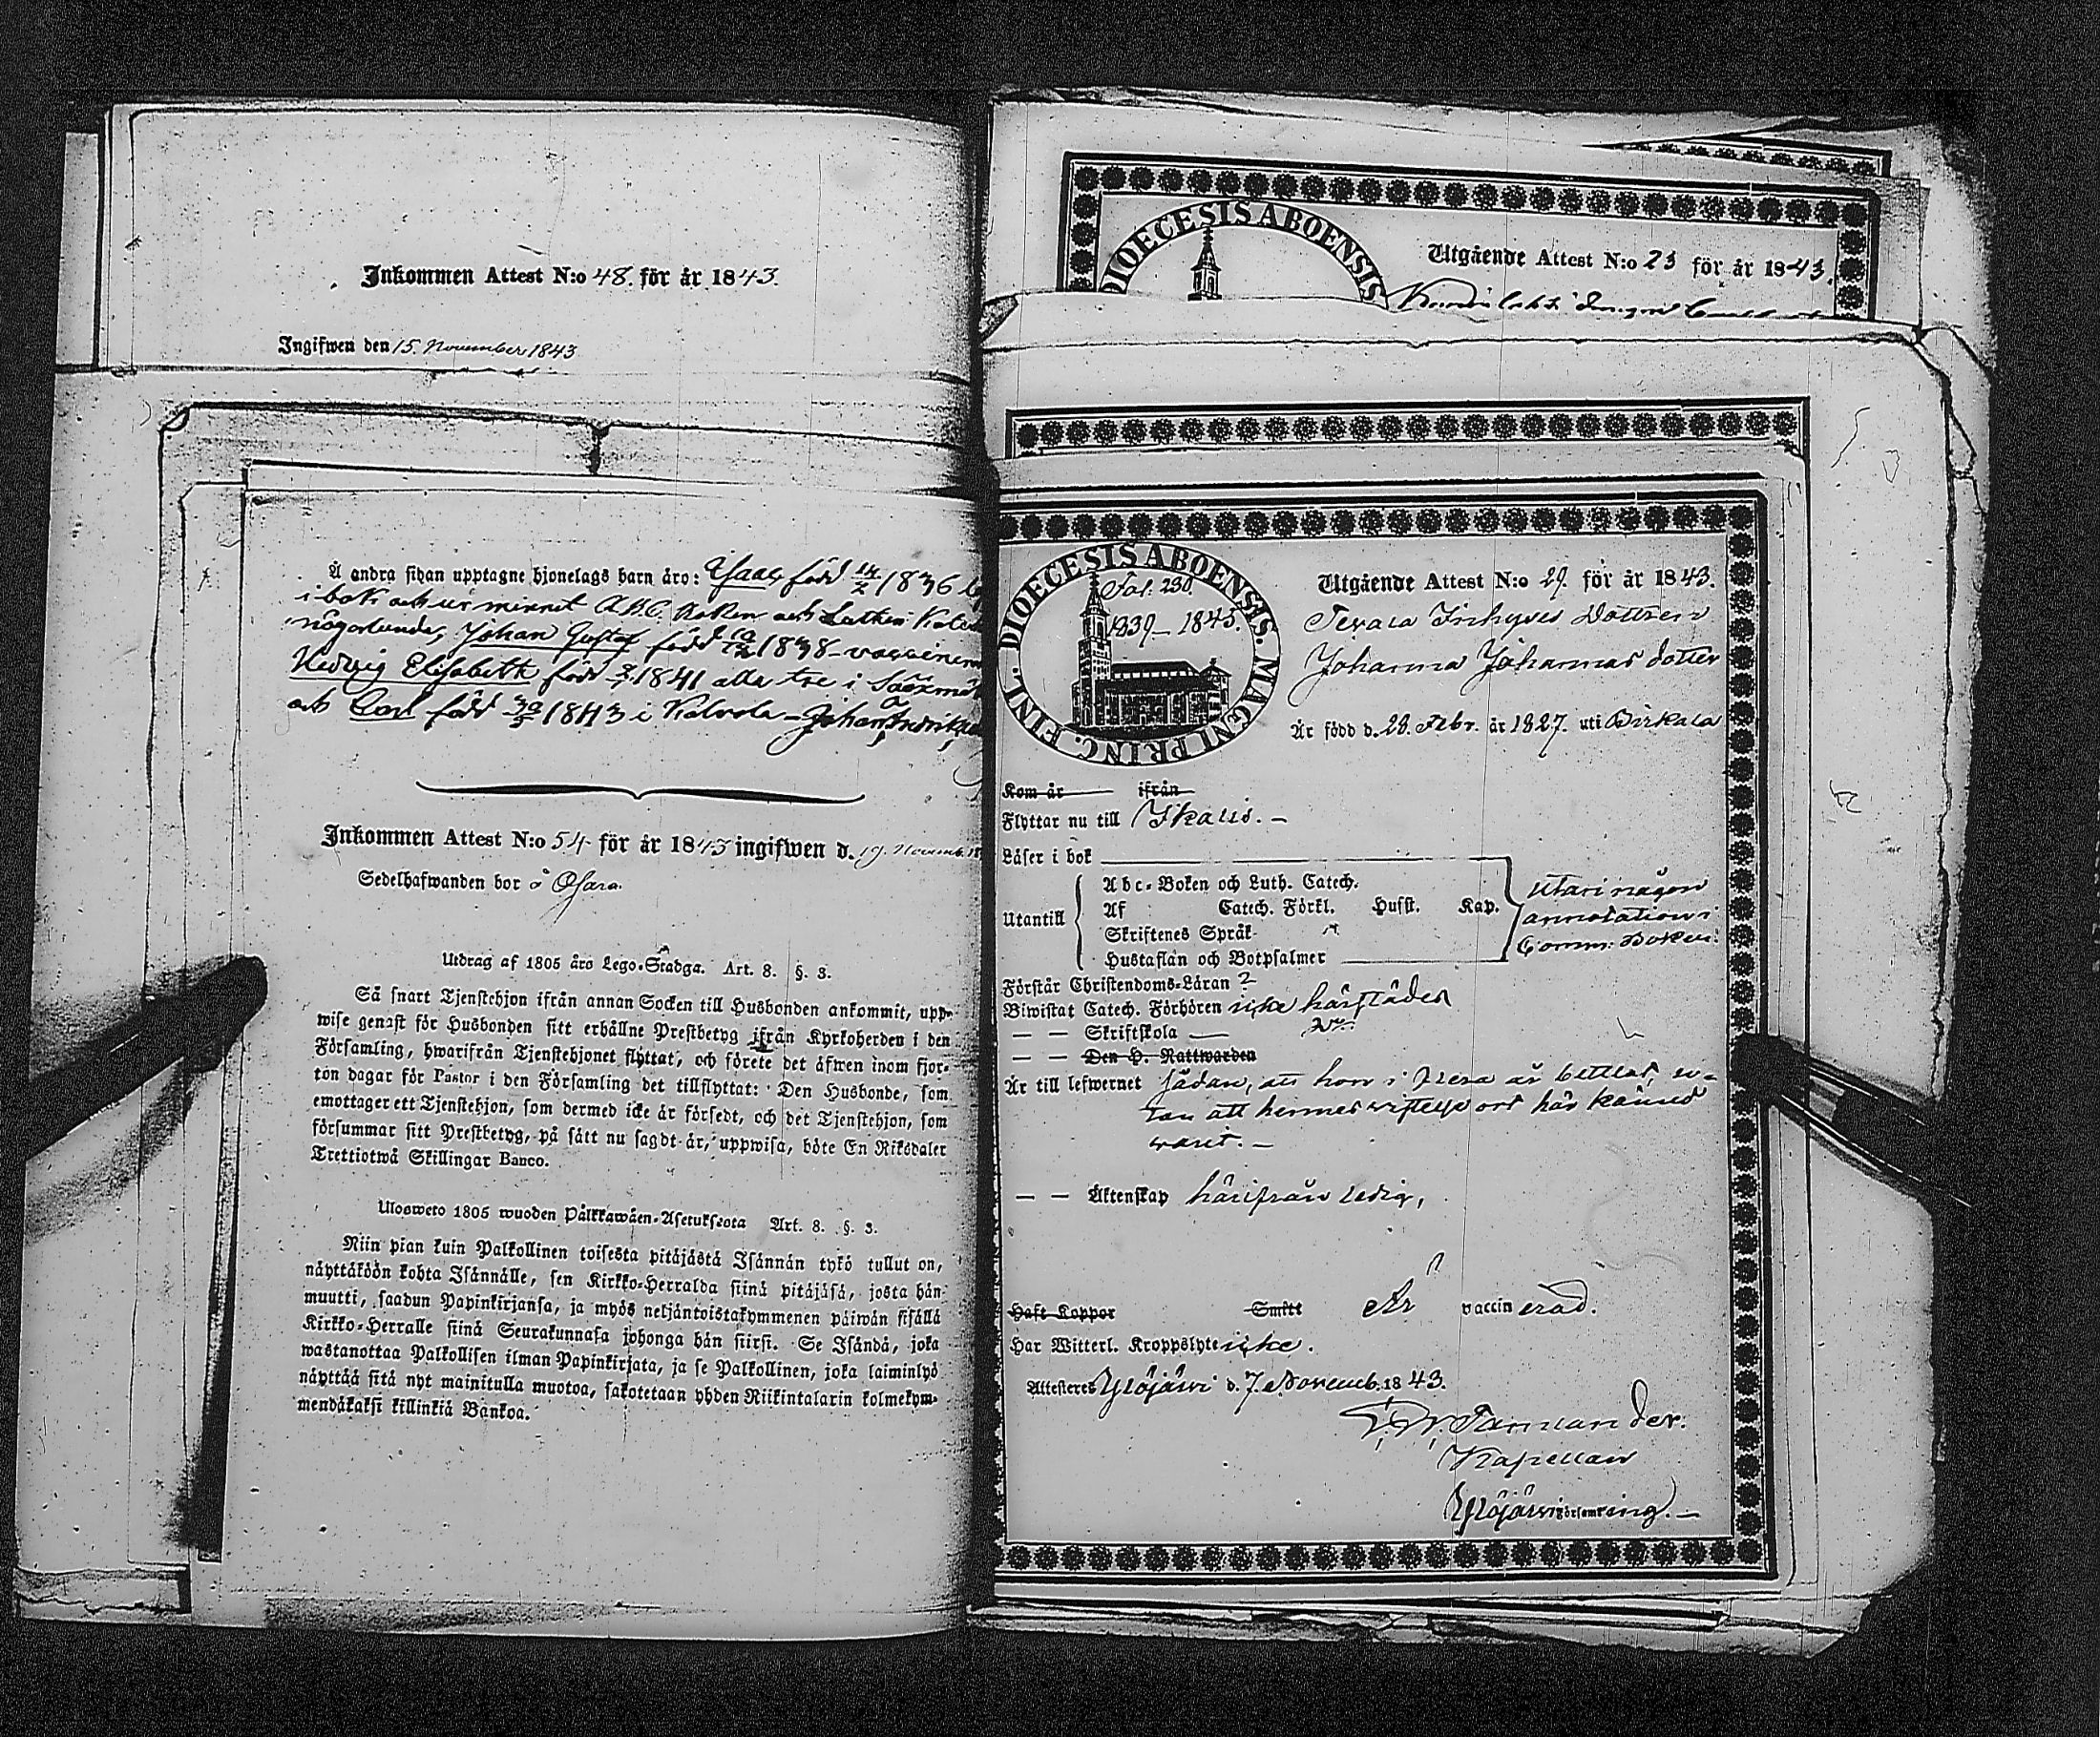 Inkommen Attest N:o 48. för år 1843.
Ingifwen den 15. November 1843
Å andra sidan upptagne hjonelags barn äro: Isaac född 14/2 1836
i bok och ur minnet A.B.C. Boken och Luthers
någorlunda, Johan Gustaf född 1838 -
Hedvig Elisabeth född 1841 alla tre i Sääxmä
och Carl född 30/ 1843 i Kalvola -
Inkommen Attest N:o 54 för år 1843 ingifwen d. 19. Novemb. 18
Sedelhafwanden bor å Osara.
Utdrag af 1805 års Lego-Stadga. Art. 8. §. 3.
Så snart Tjenstehjon ifrån annan Socken till Husbonden ankommit, upp-
wise genast för Husbonden sitt erhållne Prestbetyg ifrån Kyrkoherden i den
Församling, hwarifrån Tjenstehjonet flyttat, och förete det äfwen inom fjor-
ton dagar för Pastor i den Församling det tillflyttat: Den Husbonde, som
emottager ett Tjenstehjon, som dermed icke är försedt, och det Tjenstehjon, som
försummar sitt Prestbetyg, på sätt nu sagdt är, uppwisa, böte En Riksdaler
Trettiotwå Skillingar Banco.
Ulosweto 1805 wuoden Pälkkawäen-Asetuksesta Art. 8. §. 3.
Niin pian kuin Palkollinen toisesta pitäjästä Isännän tykö tullut on,
näyttäköön kohta Isännälle, sen Kirkko-Herralda siinä pitäjäsä, josta hän
muutti, saadun Papinkirjansa, ja myös neljäntoistakymmenen päiwän sisällä
Kirkko-Herralle siinä Seurakunnasa johonga hän siirsi. Se Isändä, joka
wastanottaa Palkollisen ilman Papinkirjata, ja se Palkollinen, joka laiminlyö
näyttää sitä nyt mainitulla muotoa, sakotetaan yhden Riikintalarin kolmekym-
mendäkaksi killinkiä Bankoa.
DIOECESIS ABOENSIS
Utgående Attest N:o 23 för år 1843.
DIOECESIS ABOENSIS. MAGNI PRINC. FINL.
Fol: 230.
1839 - 1843.
Utgående Attest N:o 29. för år 1843.
Dottren
Johanna Johannas dotter
Är född d. 28. Febr. år 1827. uti Birkala
Kom år ifrån
Flyttar nu till Ikalis. -
Läser i bok
Utantill
Abc-Boken och Luth. Catech.
Af Catech. Förkl. Husst. Kap.
Skriftenes Språk
Hustaflan och Botpsalmer
Utan någon
annotation i
Comm: Boken.
Förstår Christendoms-Läran ?
Biwistat Catech. Förhören icke härstädes
— — Skriftskola —
— — Den H. Nattwarden
Är till lefwernet sådan, att hon i flera år bettlat, u-
tan att hennes vistelse ort här känd
varit. -
— — Äktenskap härifrån ledig,
Haft Koppor Smitt Är vaccinerad.
Har Witterl. Kroppslyte icke.
Attesteres Ylöjärvi d. 7. Novemb. 1843.
Kapellan
Ylöjärvi församling. -